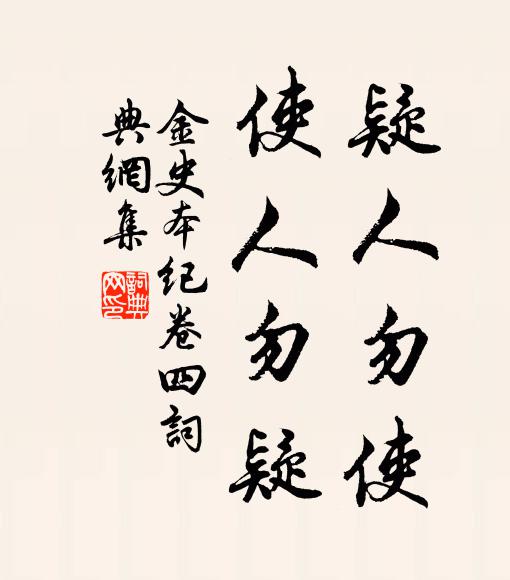 疑人勿使
使人勿疑
金史本紀卷四詞
典網集
詞典
网印